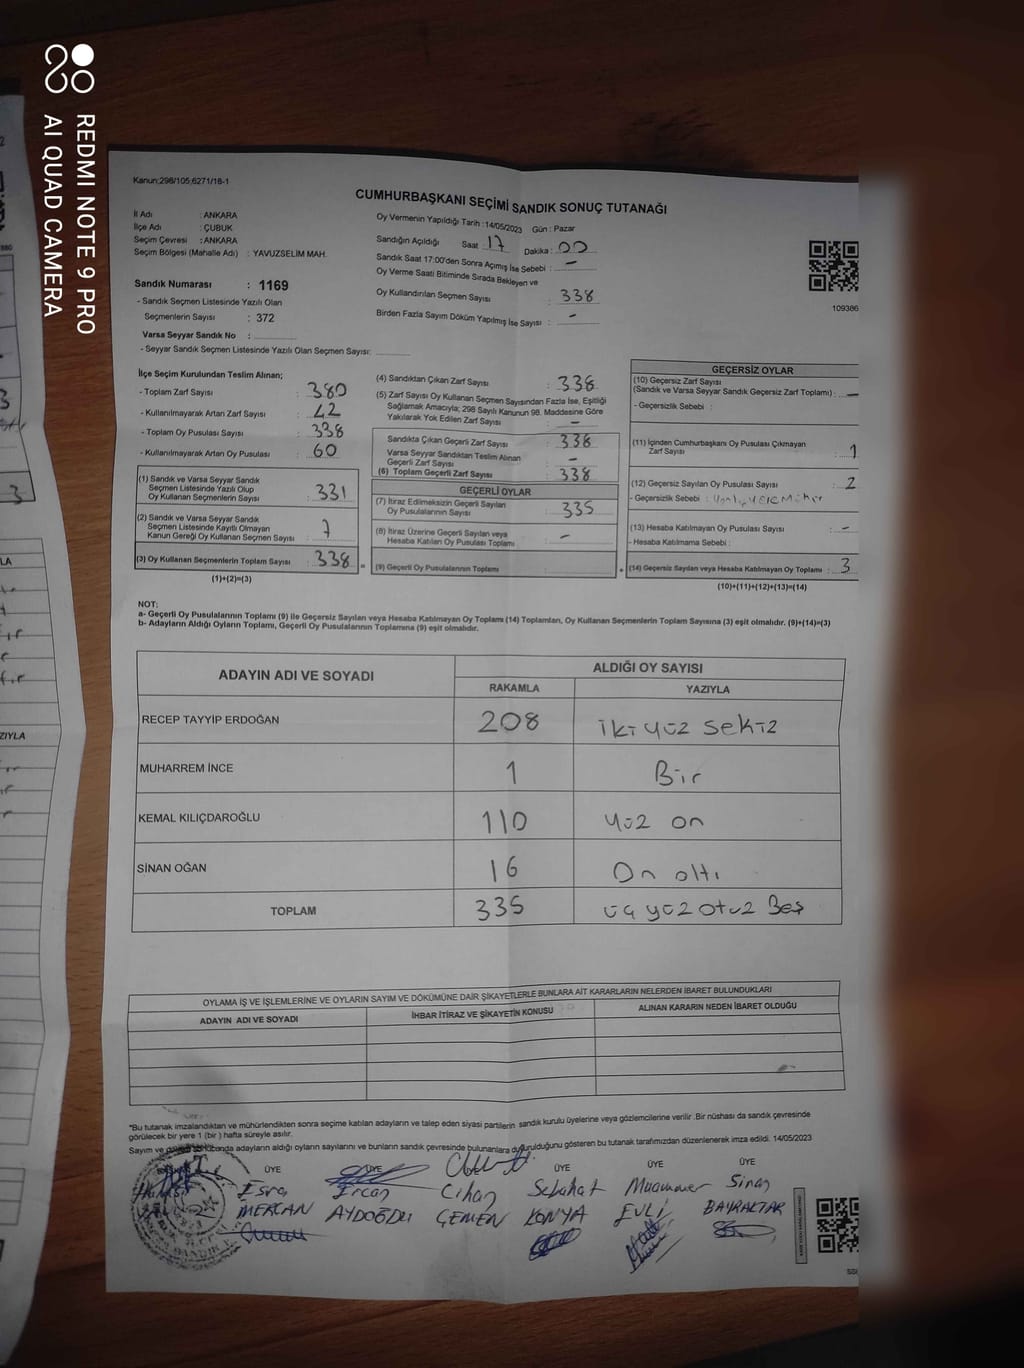 REDMI NOTE 9 PRO
AI QUAD CAMERA
Kanun;298/105;6271/18-1
CUMHURBAŞKANI SEÇİMİ SANDIK SONUÇ TUTANAĞI
İl Adı : ANKARA
İlçe Adı : ÇUBUK
Seçim Çevresi : ANKARA
Seçim Bölgesi (Mahalle Adı) : YAVUZSELİM MAH.
Sandık Numarası : 1169
- Sandık Seçmen Listesinde Yazılı Olan
Seçmenlerin Sayısı : 372
Varsa Seyyar Sandık No :
- Seyyar Sandık Seçmen Listesinde Yazılı Olan Seçmen Sayısı:
Oy Vermenin Yapıldığı Tarih :14/05/2023 Gün : Pazar
Sandığın Açıldığı Saat 17 Dakika : 00
Sandık Saat 17:00'den Sonra Açımış İse Sebebi : -
Oy Verme Saati Bitiminde Sırada Bekleyen ve
Oy Kullandırılan Seçmen Sayısı : 338
Birden Fazla Sayım Döküm Yapılmış İse Sayısı : -
109386
İlçe Seçim Kurulundan Teslim Alınan;
- Toplam Zarf Sayısı : 380
- Kullanılmayarak Artan Zarf Sayısı : 42
- Toplam Oy Pusulası Sayısı : 338
- Kullanılmayarak Artan Oy Pusulası : 60
(1) Sandık ve Varsa Seyyar Sandık
Seçmen Listesinde Yazılı Olup
Oy Kullanan Seçmenlerin Sayısı : 331
(2) Sandık ve Varsa Seyyar Sandık
Seçmen Listesinde Kayıtlı Olmayan
Kanun Gereği Oy Kullanan Seçmen Sayısı : 7
(3) Oy Kullanan Seçmenlerin Toplam Sayısı : 338
(1)+(2)=(3)
(4) Sandıktan Çıkan Zarf Sayısı : 338
(5) Zarf Sayısı Oy Kullanan Seçmen Sayısından Fazla İse, Eşitliği
Sağlamak Amacıyla; 298 Sayılı Kanunun 98. Maddesine Göre
Yakılarak Yok Edilen Zarf Sayısı : -
Sandıkta Çıkan Geçerli Zarf Sayısı : 338
Varsa Seyyar Sandıktan Teslim Alınan
Geçerli Zarf Sayısı : -
(6) Toplam Geçerli Zarf Sayısı : 338
GEÇERLİ OYLAR
(7) İtiraz Edilmeksizin Geçerli Sayılan
Oy Pusulalarının Sayısı : 335
(8) İtiraz Üzerine Geçerli Sayılan veya
Hesaba Katılan Oy Pusulası Toplamı : -
(9) Geçerli Oy Pusulalarının Toplamı :
GEÇERSİZ OYLAR
(10) Geçersiz Zarf Sayısı
(Sandık ve Varsa Seyyar Sandık Geçersiz Zarf Toplamı) : -
- Geçersizlik Sebebi :
(11) İçinden Cumhurbaşkanı Oy Pusulası Çıkmayan
Zarf Sayısı : 1
(12) Geçersiz Sayılan Oy Pusulası Sayısı : 2
- Geçersizlik Sebebi :
(13) Hesaba Katılmayan Oy Pusulası Sayısı : -
- Hesaba Katılmama Sebebi :
(14) Geçersiz Sayılan veya Hesaba Katılmayan Oy Toplamı : 3
(10)+(11)+(12)+(13)=(14)
NOT:
a- Geçerli Oy Pusulalarının Toplamı (9) ile Geçersiz Sayılan veya Hesaba Katılmayan Oy Toplamı (14) Toplamları, Oy Kullanan Seçmenlerin Toplam Sayısına (3) eşit olmalıdır. (9)+(14)=(3)
b- Adayların Aldığı Oyların Toplamı, Geçerli Oy Pusulalarının Toplamına (9) eşit olmalıdır.
ADAYIN ADI VE SOYADI ALDIĞI OY SAYISI
RAKAMLA YAZIYLA
RECEP TAYYİP ERDOĞAN 208 iki yüz sekiz
MUHARREM İNCE 1 Bir
KEMAL KILIÇDAROĞLU 110 yüz on
SİNAN OĞAN 16 On altı
TOPLAM 335 üç yüz otuz Beş
OYLAMA İŞ VE İŞLEMLERİNE VE OYLARIN SAYIM VE DÖKÜMÜNE DAİR ŞİKAYETLERLE BUNLARA AİT KARARLARIN NELERDEN İBARET BULUNDUKLARI
ADAYIN ADI VE SOYADI İHBAR İTİRAZ VE ŞİKAYETİN KONUSU ALINAN KARARIN NEDEN İBARET OLDUĞU
*Bu tutanak imzalandıktan ve mühürlendikten sonra seçime katılan adayların ve talep eden siyasi partilerin sandık kurulu üyelerine veya gözlemcilerine verilir .Bir nüshası da sandık çevresinde
görülecek bir yere 1 (bir ) hafta süreyle asılır.
adayların aldığı oyların sayılarını ve bunların sandık çevresinde bulunanlara duyurulduğunu gösteren bu tutanak tarafımızdan düzenlenerek imza edildi. 14/05/2023
ÜYE ÜYE ÜYE ÜYE ÜYE
Esra Ercan Cihan Selahat Muammer Sinan
MERCAN AYDOĞDU ÇEMEN KONYA EVLİ BAYRAKTAR